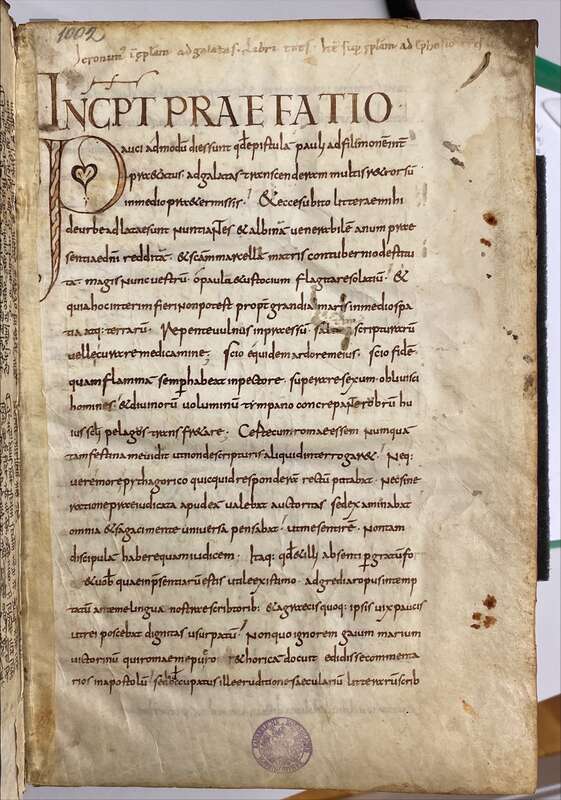 1002
INCPT PRAEFATIO
Pauci admodū dies sunt qđ epistulā pauli ad filimonē int
praetatus ad galatas transcenderam multis retrorsū
in medio praetermissis. Et ecce subito litterae mihi
de urbe adlatae sunt nuntiantes & albinā uenerabilē anum prae
sentiae dnī redditā. & scam marcellā matris contubernio destitu
tā. magis nunc uestrū o paula & eustocium flagitare solatiū. &
quia hoc interim fieri non potest propt grandia maris in medio spa
tia atq: terrarū. Repente uulnus inpressū scripturarū
uelle curare medicamine; scio equidem ardorem eius. scio fidē.
quam flammā semp habeat in pectore. superare sexum. obliuisci
homines. & diuinorū uoluminū timpano concrepante rubrū hu
ius sclī pelagus transfretare. Certe cum romae essem numquā
tam festina me uidit ut non de scripturis aliquid interrogaret. Neq:
uero more pythagorico quicquid responderē rectū putabat. Nec sine
ratione praeiudicata apud eā ualebat auctoritas sed examinabat
omnia & sagaci mente uniuersa pensabat. ut me sentirē. Non tam
discipulā habere quam iudicem. Itaq: qđ & illi absenti pergratū fo
& uobis quae in psentiarū estis utile existimo. adgrediar opus intemp
tatū ante me linguae nostrae scribtorib: & a grecis quoq: ipsis uix paucis
ut rei poscebat dignitas usurpatū. Non quo ignorem gaium marium
uictorinū qui romae me puero rethoricā docuit edidisse commenta
rios in apostolū. sed qđ occupatus ille eruditione saeculariū litterarū scrib